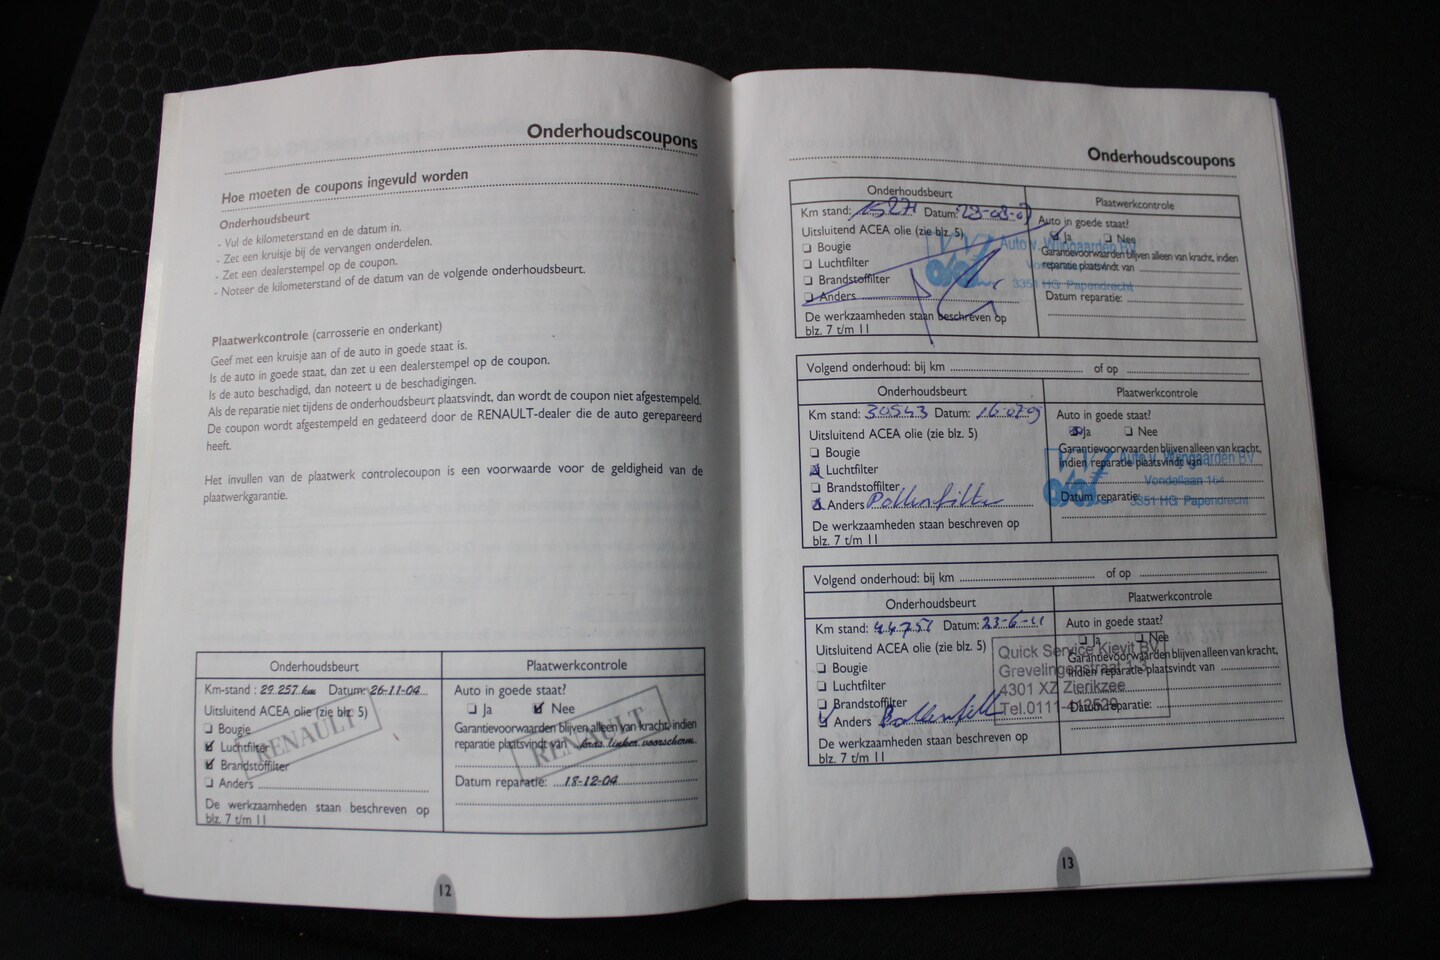 Onderhoudscoupons
Hoe moeten de coupons ingevuld worden
Onderhoudsbeurt
- Vul de kilometerstand en de datum in.
- Zet een kruisje bij de vervangen onderdelen.
- Zet een dealerstempel op de coupon.
- Noteer de kilometerstand of de datum van de volgende onderhoudsbeurt.
Plaatwerkcontrole (carrosserie en onderkant)
Geef met een kruisje aan of de auto in goede staat is.
Is de auto in goede staat, dan zet u een dealerstempel op de coupon.
Is de auto beschadigd, dan noteert u de beschadigingen.
Als de reparatie niet tijdens de onderhoudsbeurt plaatsvindt, dan wordt de coupon niet afgestempeld.
De coupon wordt afgestempeld en gedateerd door de RENAULT-dealer die de auto gerepareerd
heeft.
Het invullen van de plaatwerk controlecoupon is een voorwaarde voor de geldigheid van de
plaatwerkgarantie.
Onderhoudsbeurt
Km-stand : 29.257 km Datum: 26-11-04
Uitsluitend ACEA olie (zie blz. 5)
Bougie
Luchtfilter
Brandstoffilter
Anders
De werkzaamheden staan beschreven op
blz. 7 t/m 11
RENAULT
Plaatwerkcontrole
Auto in goede staat?
Ja Nee
Garantievoorwaarden blijven alleen van kracht, indien
reparatie plaatsvindt van kras linker voorscherm
Datum reparatie: 18-12-04
RENAULT
12
Onderhoudscoupons
Onderhoudsbeurt
Km stand: 15271 Datum: 23-08-07
Uitsluitend ACEA olie (zie blz. 5)
Bougie
Luchtfilter
Brandstoffilter
Anders
De werkzaamheden staan beschreven op
blz. 7 t/m 11
Plaatwerkcontrole
Auto in goede staat?
Ja Nee
Garantievoorwaarden blijven alleen van kracht, indien
reparatie plaatsvindt van
Datum reparatie:
Auto v. Wijngaarden BV
3351 HG Papendrecht
Volgend onderhoud: bij km of op
Onderhoudsbeurt
Km stand: 30543 Datum: 16-079
Uitsluitend ACEA olie (zie blz. 5)
Bougie
Luchtfilter
Brandstoffilter
Anders Pollenfilter
De werkzaamheden staan beschreven op
blz. 7 t/m 11
Plaatwerkcontrole
Auto in goede staat?
Ja Nee
Garantievoorwaarden blijven alleen van kracht,
indien reparatie plaatsvindt van
Datum reparatie:
Auto v. Wijngaarden BV
Vondellaan 164
3351 HG Papendrecht
Volgend onderhoud: bij km of op
Onderhoudsbeurt
Km stand: 44751 Datum: 23-6-11
Uitsluitend ACEA olie (zie blz. 5)
Bougie
Luchtfilter
Brandstoffilter
Anders Pollenfilt
De werkzaamheden staan beschreven op
blz. 7 t/m 11
Plaatwerkcontrole
Auto in goede staat?
Ja Nee
Garantievoorwaarden blijven alleen van kracht,
indien reparatie plaatsvindt van
Datum reparatie:
Quick Service Kievit BV
Grevelingenstraat
4301 XZ Zierikzee
Tel.0111-
13